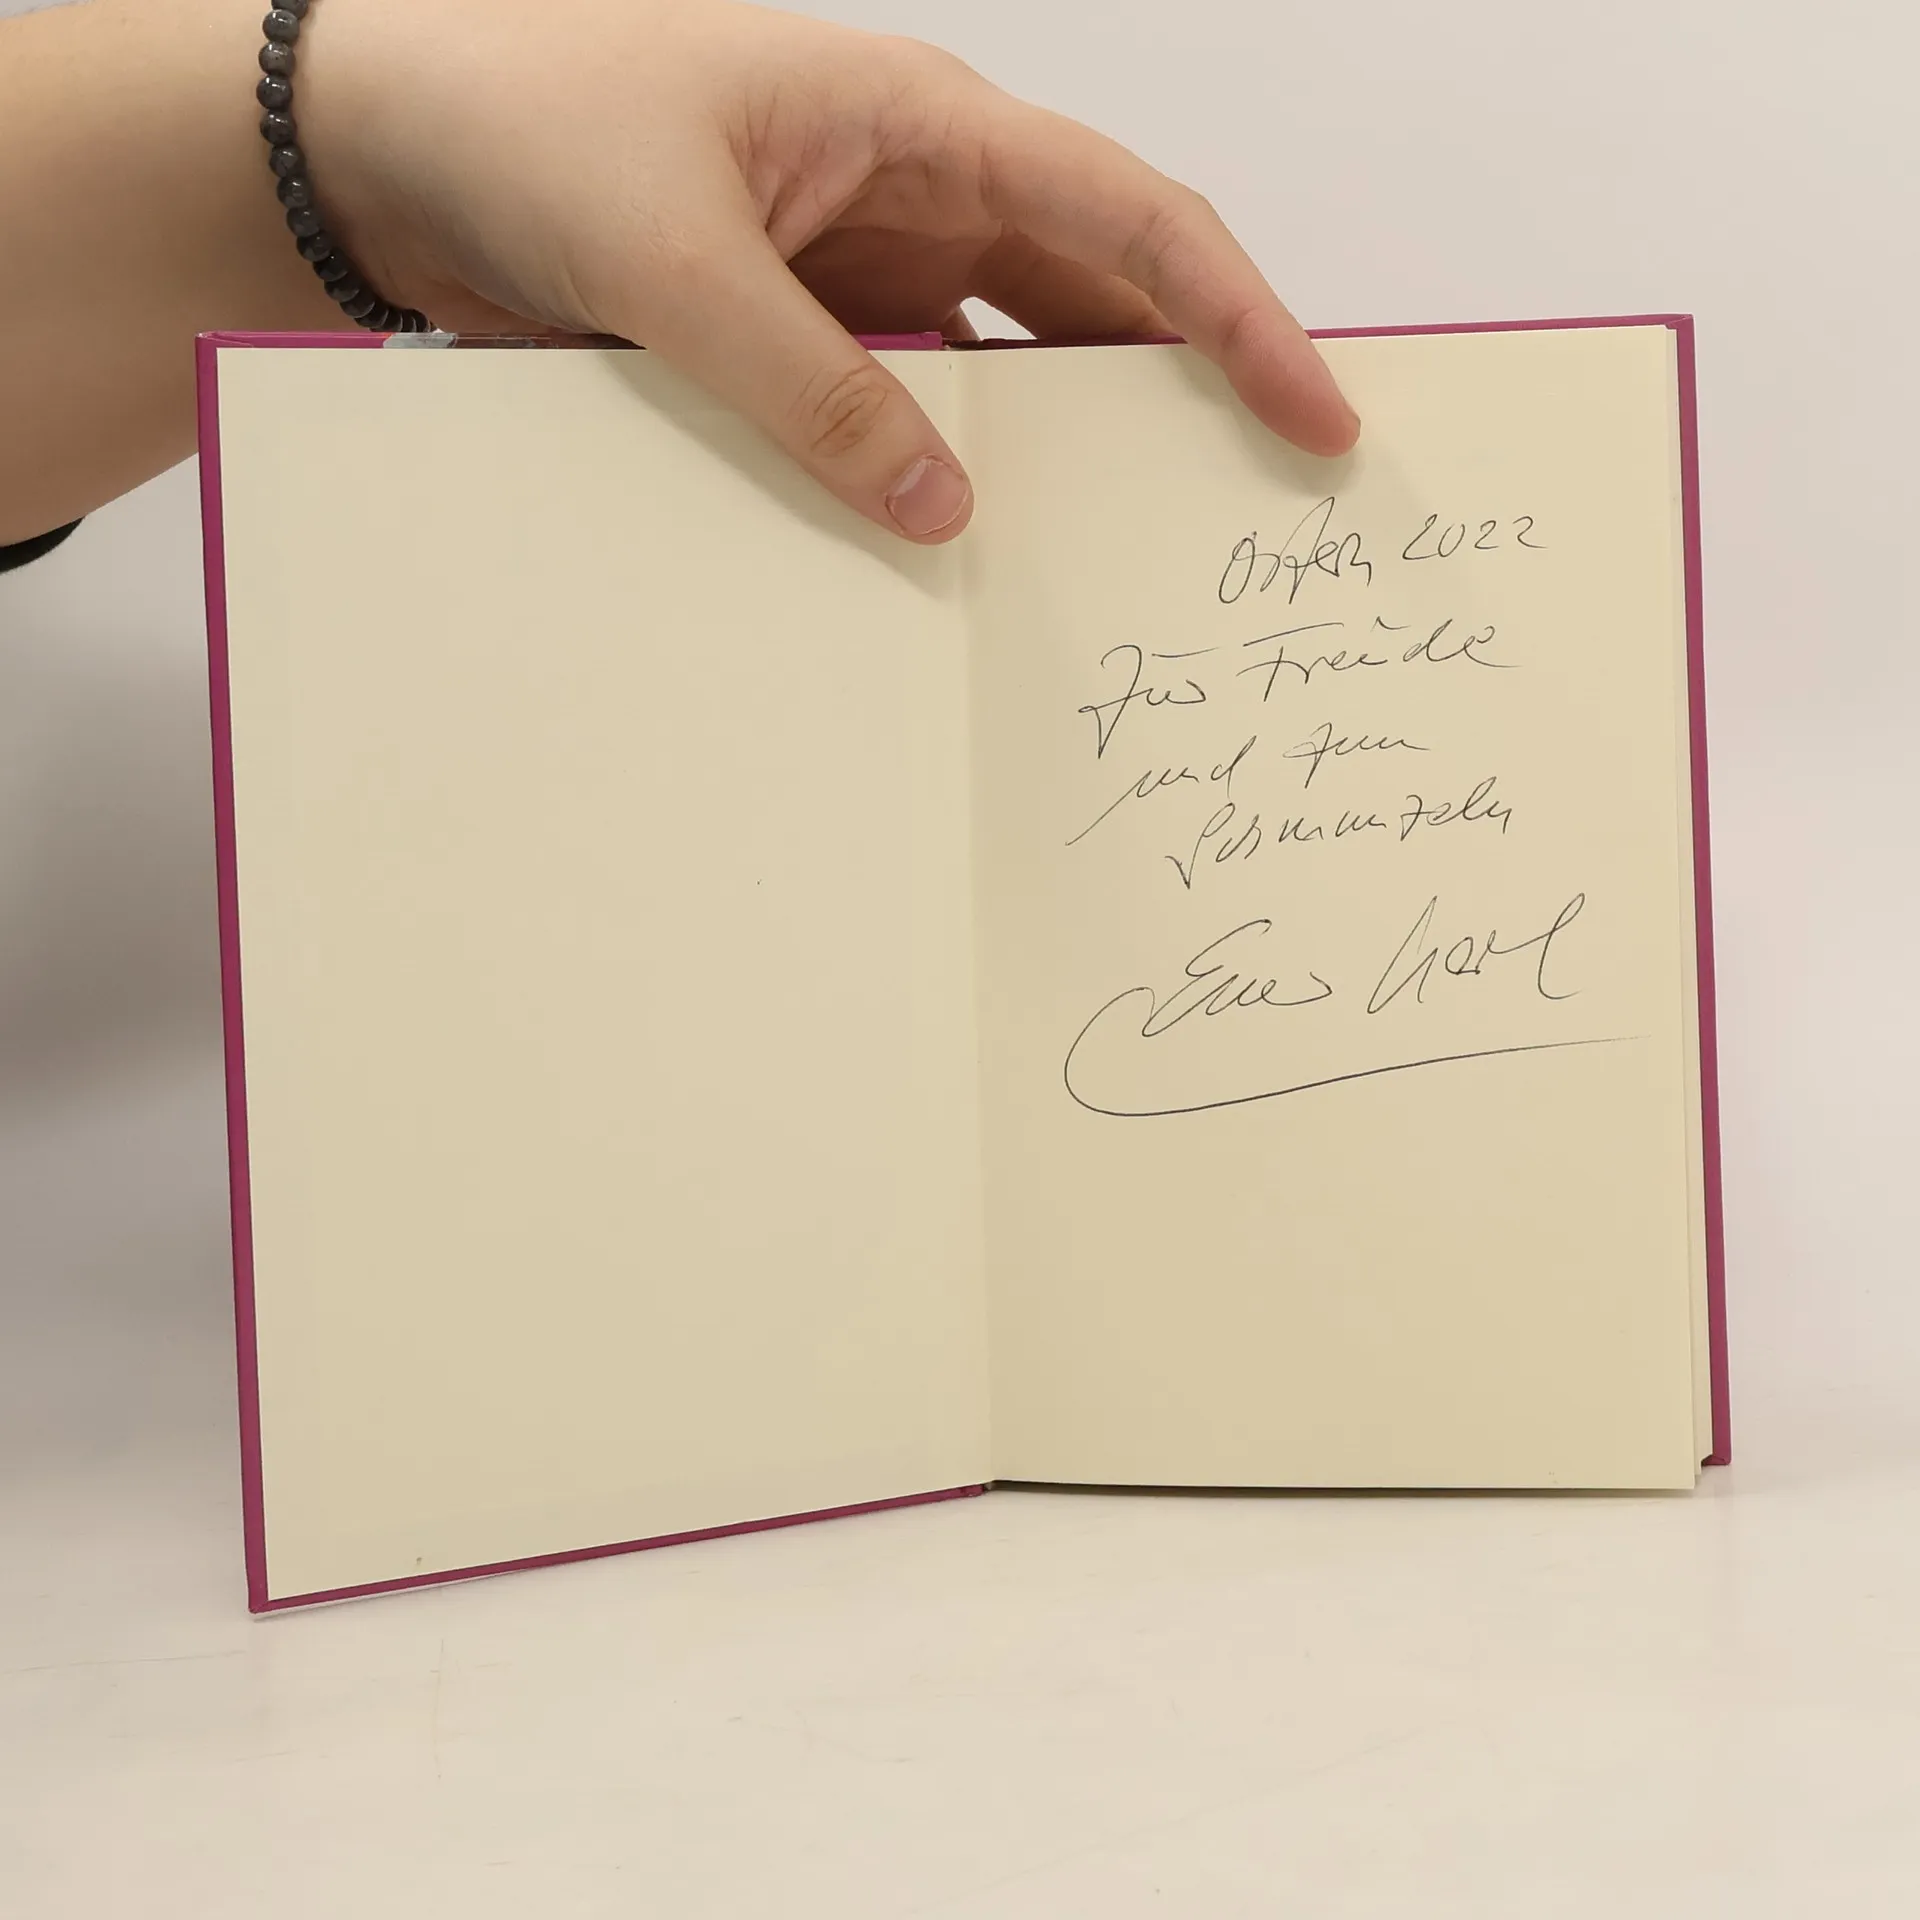 Ostern 2022
Zur Freude
und zum
Schmunzeln
Euer Karl